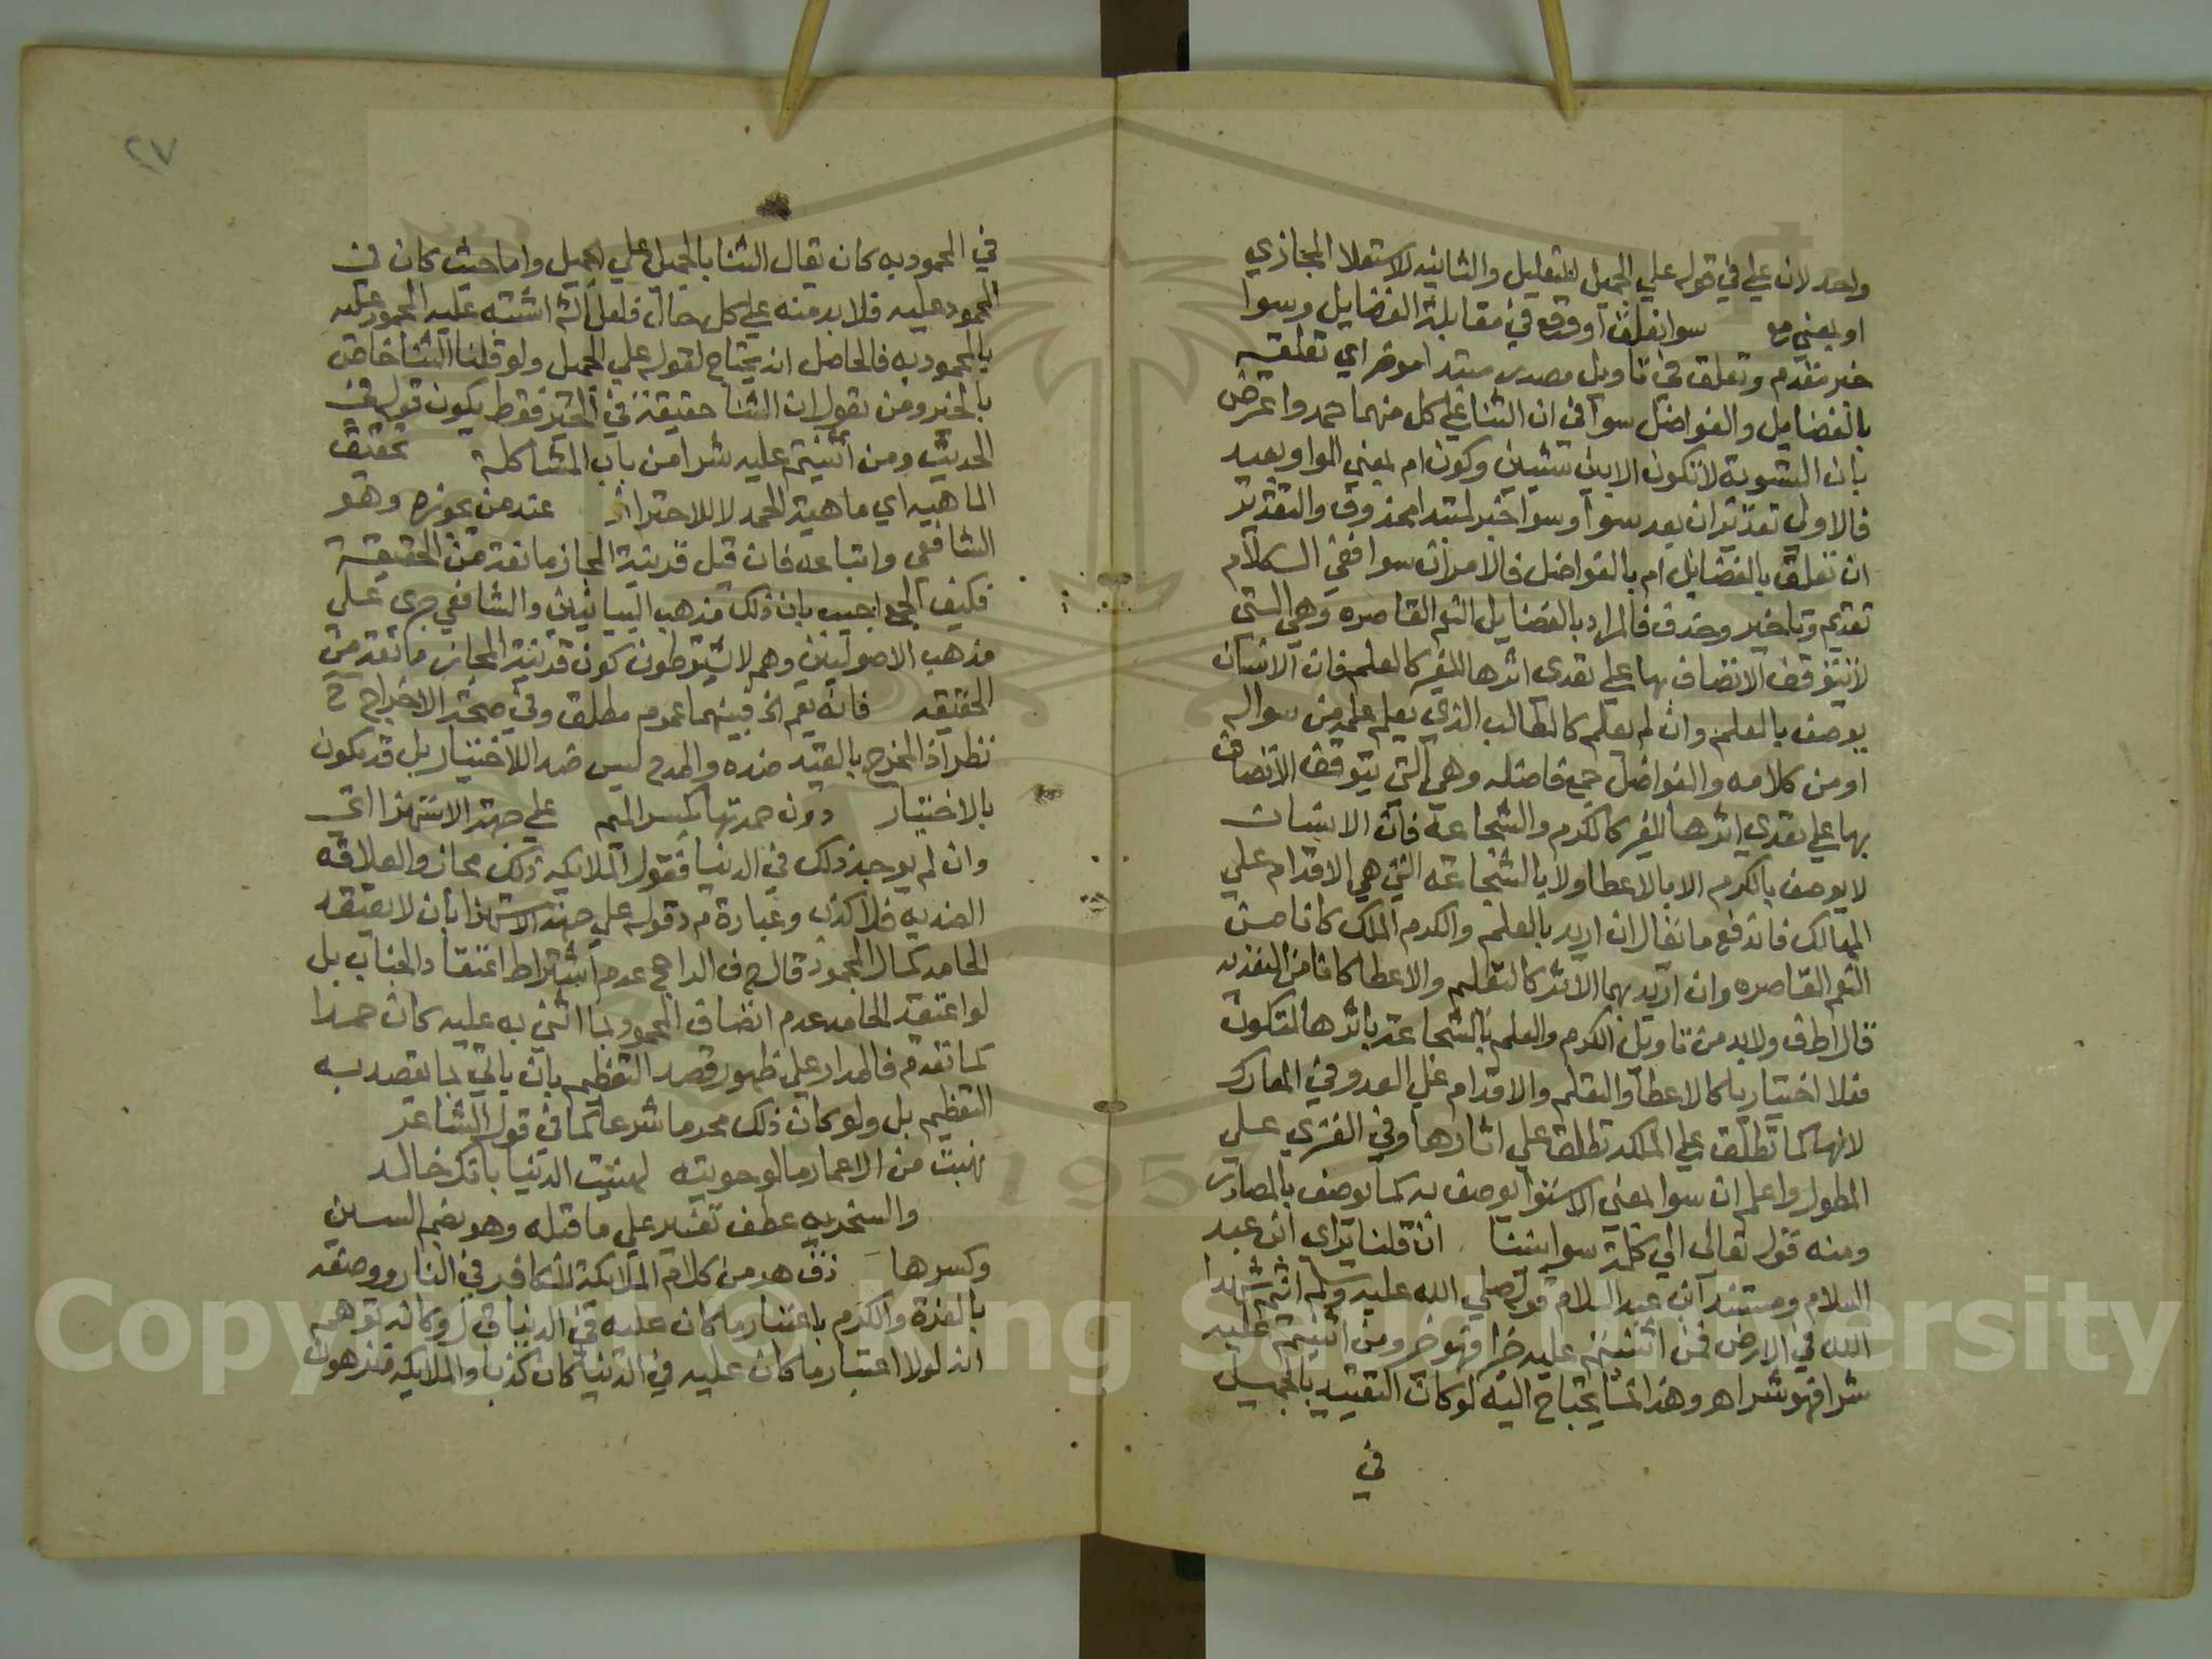 واحد لان علي في قوله علي الجميل للتعليل والثانيه للاستعلا المجازي
او بمعني مع سوا تعلق او وقع في مقابلة الفضايل وسوا
خبر مقدم وتعلق في تاويل مصدر مبتدا موخر اي تعلقه
بالفضايل والفواضل سوا في ان الثنا علي كل منهما حمد واعترض
بان التسوية لا تكون الا بين شيين وكون ام بمعني الواو بعيد
فالاولي تقدير ان بعد سوا وسوا خبر لمبتدا محذوف والتقدير
ان تعلق بالفضايل ام بالفواضل فالامران سوا ففي الكلام
تقديم وتاخير وحذف فالمراد بالفضايل النعم القاصره وهي التي
لا يتوقف الاتصاف بها علي تعدي اثرها للغير كالعلم فان الانسان
يوصف بالعلم وان لم يعلم كالطالب الذي يعلم علمه من سواله
او من كلامه والفواضل جمع فاضله وهي التي يتوقف الاتصاف
بها علي تعدي اثرها للغير كالكرم والشجاعة فان الانسان
لا يوصف بالكرم الا بالاعطا ولا بالشجاعه التي هي الاقدام علي
المهالك فاندفع ما يقال ان اريد بالعلم والكرم الملك كانا من
النعم القاصره وان اريد بهما الاثر كالتعليم والاعطا كانا من المتعديه
قال اطف ولا بد من تاويل الكرم والعلم بالشجاعة باثرها لتكون
فعلا اختياريا كالاعطا والتعلم والاقدام علي العدو في المعارك
لانها كما تطلق علي الملكه تطلق علي اثارها وفي الغزي علي
المطول واعلم ان سوا بمعني الاستوا يوصف به كما يوصف بالمصادر
ومنه قوله تعالي الي كلمة سوا بيننا ان قلنا براي ابن عبد
السلام ومستند ابن عبد السلام قوله صلي الله عليه وسلم انتم شهدا
الله في الارض فمن اثنيتم عليه خيرا فهو خير ومن اثنيتم عليه
شرا فهو شر اهـ وهذا انما يحتاج اليه لو كان التقييد بالجميل
في
٢٧
في المحمود به كان يقال الثنا بالجميل علي الجميل واما حيث كان في
المحمود عليه فلا بد منه علي كل حال فلعل اشتبه عليه المحمود عليه
بالمحمود به فالحاصل انه يحتاج لقوله علي الجميل ولو قلنا الثنا خاص
بالخير ومن يقول ان الثنا حقيقة في الخير فقط يكون قوله في
الحديث ومن اثنيتم عليه شرا من باب المشاكلة تحقيق
الماهيه اي ماهية الحمد لا للاحتراز عند من يجوزه وهو
الشافعي واتباعه فان قيل قرينة المجاز مانعة من الحقيقة
فكيف الجمع اجيب بان ذلك مذهب البيانيين والشافعي جري علي
مذهب الاصوليين وهم لا يشترطون كون قرينة المجاز مانعة من
الحقيقه فانه يعم الخ فبينهما عموم مطلق وفي صحة الاخراج ح
نظر اذ المخرج بالقيد ضده والمدح ليس ضد اللاختيار بل قد يكون
بالاختيار دون حمدتها بكسر الميم علي جهة الاستهزا اي
وان لم يوجد ذلك في الدنيا فقول الملايكه ذلك مجاز والعلاقه
الضديه فلا كذب وعبارة م د قوله علي جهة الاستهزا بان لا يعتقد
الحامد كمال المحمود قال ح ف الراجح عدم اشتراط اعتقاد الجناب بل
لو اعتقد الحامد عدم اتصاف المحمود بما اثني به عليه كان حمدا
كما تقدم فالمدار علي ظهور قصد التعظيم بان ياتي بما يقصد به
التعظيم بل ولو كان ذلك محرما شرعا كما في قول الشاعر
نهبت من الاعمار ما لو حويته لهنيت الدنيا بانك خالد
والسخريه عطف تفسير علي ما قبله وهو بضم السين
وكسرها ذق هو من كلام الملايكة للكافر في النار ووصفه
بالعزة والكرم باعتبار ما كان عليه في الدنيا ق ل وكانه توهم
انه لولا اعتبار ما كان عليه في الدنيا كان كذبا والملايكه منزهون